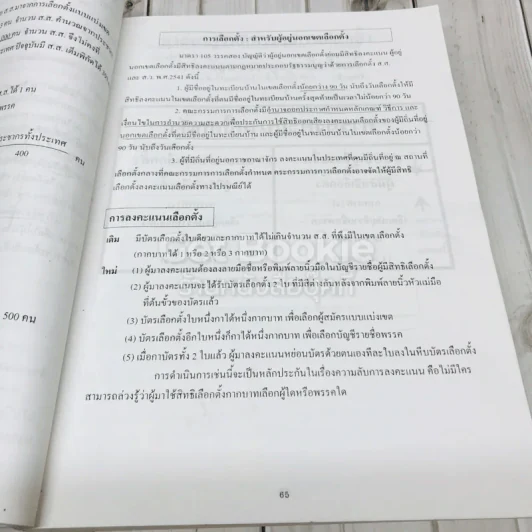 การเลือกตั้ง : สำหรับผู้อยู่นอกเขตเลือกตั้ง
มาตรา 105 วรรคสอง บัญญัติว่าผู้อยู่นอกเขตเลือกตั้งย่อมมีสิทธิลงคะแนน ผู้อยู่
นอกเขตเลือกตั้งมีสิทธิลงคะแนนตามกฎหมายประกอบรัฐธรรมนูญว่าด้วยการเลือกตั้ง ส.ส.
และ ส.ว. พ.ศ.2541 ดังนี้
1. ผู้มีชื่ออยู่ในทะเบียนบ้านในเขตเลือกตั้งน้อยกว่า 90 วัน นับถึงวันเลือกตั้งให้มี
สิทธิลงคะแนนในเขตเลือกตั้งที่ตนมีชื่ออยู่ในทะเบียนบ้านครั้งสุดท้ายเป็นเวลาไม่น้อยกว่า 90 วัน
2. คณะกรรมการการเลือกตั้งมีอำนาจออกประกาศกำหนดหลักเกณฑ์ วิธีการ และ
เงื่อนไขในการอำนวยความสะดวกเพื่อประกันการใช้สิทธิออกเสียงลงคะแนนเลือกตั้งของผู้มีถิ่นที่อยู่
นอกเขตเลือกตั้งที่ตนมีชื่ออยู่ในทะเบียนบ้าน และผู้มีชื่ออยู่ในทะเบียนบ้านในเขตเลือกตั้งน้อยกว่า
90 วัน นับถึงวันเลือกตั้ง
3. ผู้ที่มีถิ่นที่อยู่นอกราชอาณาจักร ลงคะแนนในประเทศที่ตนมีถิ่นที่อยู่ ณ สถานที่
เลือกตั้งกลางที่คณะกรรมการการเลือกตั้งกำหนด คระกรรมการการเลือกตั้งอาจจัดให้ผู้มีสิทธิ
เลือกตั้งลงคะแนนเลือกตั้งทางไปรษณีย์ได้
การลงคะแนนเลือกตั้ง
เดิม มีบัตรเลือกตั้งใบเดียวและกากบาทได้ไม่เกินจำนวน ส.ส. ที่พึงมีในเขต เลือกตั้ง
(กากบาทได้ 1 หรือ 2 หรือ 3 กากบาท)
ใหม่ (1) ผู้มาลงคะแนนต้องลงลายมือชื่อหรือพิมพ์ลายนิ้วมือในบัญชีรายชื่อผู้มีสิทธิเลือกตั้ง
(2) ผู้มาลงคะแนนจะได้รับบัตรเลือกตั้ง 2 ใบ ที่มีสีต่างกันหลังจากพิมพ์ลายนิ้วหัวแม่มือ
ที่ต้นขั้วของบัตรแล้ว
(3) บัตรเลือกตั้งใบหนึ่งกาได้หนึ่งกากบาท เพื่อเลือกผู้สมัครแบบแบ่งเขต
(4) บัตรเลือกตั้งอีกใบหนึ่งก็กาได้หนึ่งกากบาท เพื่อเลือกบัญชีรายชื่อพรรค
(5) เมื่อกาบัตรทั้ง 2 ใบแล้ว ผู้มาลงคะแนนหย่อนบัตรด้วยตนเองทีละใบลงในหีบบัตรเลือกตั้ง
การดำเนินการเช่นนี้จะเป็นหลักประกันในเรื่องความลับการลงคะแนน คือไม่มีใคร
สามารถล่วงรู้ว่าผู้มาใช้สิทธิเลือกตั้งกากบาทเลือกผู้ใดหรือพรรคใด
65
ส.ได้ 1 คน
ประชากรทั้งประเทศ
400
คน
500 คน